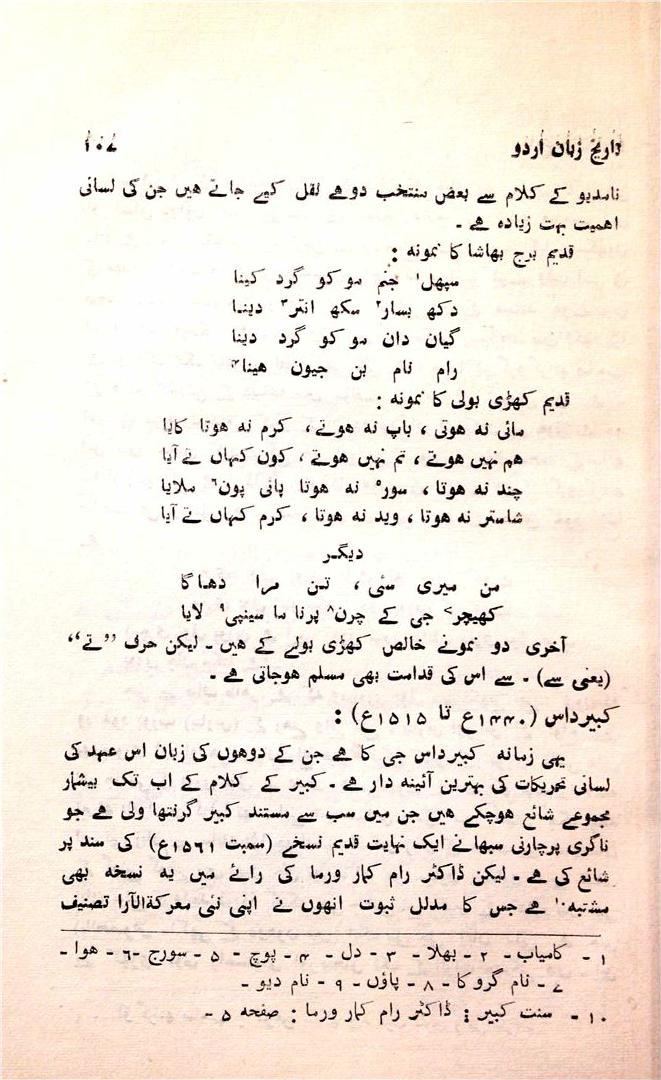 تاریخ زبان اردو ۱۰۷
نامدیو کے کلام سے بعض منتخب دوہے نقل کیے جاتے ہیں جن کی لسانی
اہمیت بہت زیادہ ہے ۔
قدیم برج بھاشا کا نمونہ :
سپھل۱ جنم مو کو گرد کینا
دکھ بسار۲ سکھ انتر۳ دینا
گیان دان مو کو گرد دینا
رام نام بن جیون ہینا۴
قدیم کھڑی بولی کا نمونہ :
مائی نہ ہوتی ، باپ نہ ہوتے ، کرم نہ ہوتا کایا
ہم نہیں ہوتے ، تم نہیں ہوتے ، کون کہاں تے آیا
چند نہ ہوتا ، سور۵ نہ ہوتا پانی پون۶ ملایا
شاستر نہ ہوتا ، وید نہ ہوتا ، کرم کہاں تے آیا
دیگر
من میری سئی ، تن مرا دھاگا
کھیچر۷ جی کے چرن۸ پرنا ما سینپی۹ لایا
آخری دو نمونے خالص کھڑی بولی کے ہیں ۔ لیکن حرف ”تے“
(یعنی سے) ۔ سے اس کی قدامت بھی مسلم ہوجاتی ہے ۔
کبیرداس (۱۴۴۰ع تا ۱۵۱۵ع) :
یہی زمانہ کبیرداس جی کا ہے جن کے دوہوں کی زبان اس عہد کی
لسانی تحریکات کی بہترین آئینہ دار ہے ۔ کبیر کے کلام کے اب تک بیشمار
مجموعے شائع ہوچکے ہیں جن میں سب سے مستند کبیر گرنتھا ولی ہے جو
ناگری پرچارنی سبھانے ایک نہایت قدیم نسخے (سمبت ۱۵۶۱ع) کی سند پر
شائع کی ہے ۔ لیکن ڈاکٹر رام کمار ورما کی رائے میں یہ نسخہ بھی
مشتبہ۱۰ ہے جس کا مدلل ثبوت انھوں نے اپنی نئی معرکۃالآرا تصنیف
۱ ۔ کامیاب ۔ ۲ ۔ بھلا ۔ ۳ ۔ دل ۔ ۴ ۔ پوچ ۔ ۵ ۔ سورج ۔۶ ۔ ہوا ۔
۷ ۔ نام گرو کا ۔ ۸ ۔ پاؤں ۔ ۹ ۔ نام دیو ۔
۱۰ ۔ سنت کبیر : ڈاکٹر رام کمار ورما : صفحہ ۵ ۔